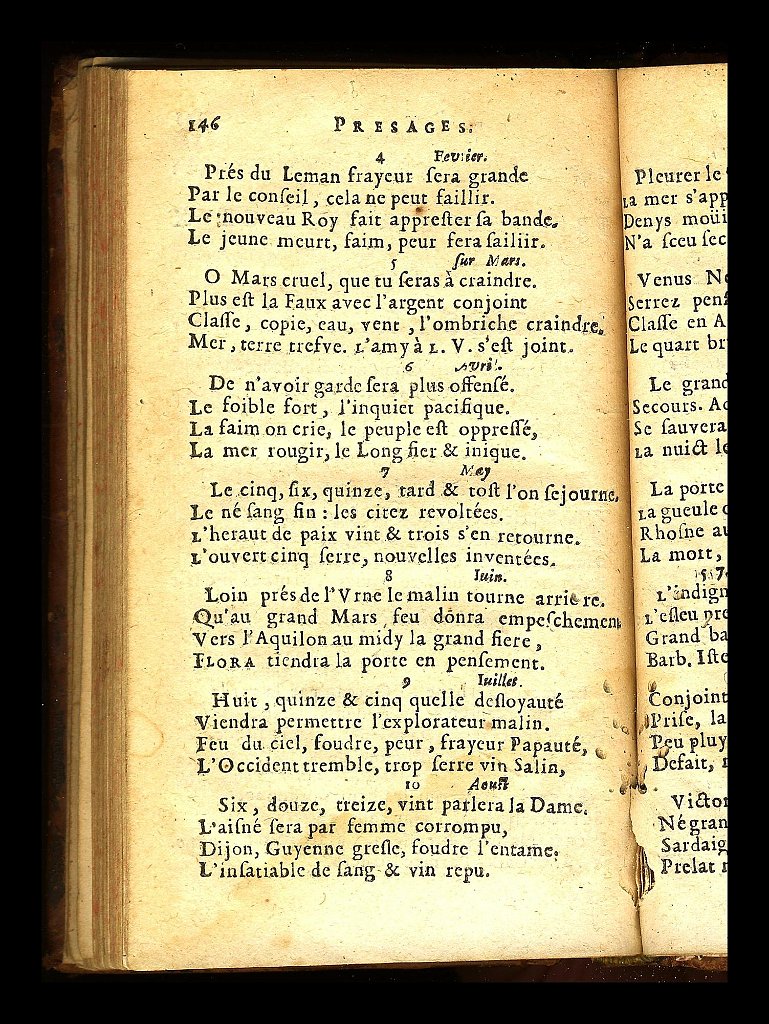 146 PRESAGES.
4 Fevrier.
Prés du Leman frayeur ſera grande
Par le conſeil, cela ne peut faillir.
Le nouveau Roy fait appreſter ſa bande.
Le jeune meurt, faim, peur fera failiir.
5 ſur Mars.
O Mars cruel, que tu ſeras à craindre.
Plus eſt la Faux avec l'argent conjoint
Claſſe, copie, eau, vent, l'ombriche craindre.
Mer, terre trefve. L'amy à L. V. s'eſt joint.
6 Avril.
De n'avoir garde ſera plus offenſé.
Le foible fort, l'inquiet pacifique.
La faim on crie, le peuple eſt oppreſſé,
La mer rougir, le Long fier & inique.
7 May
Le cinq, ſix, quinze, tard & toſt l'on ſejourne,
Le né ſang fin : les citez revoltées.
L'heraut de paix vint & trois s'en retourne.
L'ouvert cinq ſerre, nouvelles inventées.
8 Iuin.
Loin prés de l'Vrne le malin tourne arriere.
Qu'au grand Mars feu donra empeſchement
Vers l'Aquilon au midy la grand fiere,
FLORA tiendra la porte en penſement.
9 Iuillet.
Huit, quinze & cinq quelle deſloyauté
Viendra permettre l'explorateur malin.
Feu du ciel, foudre, peur, frayeur Papauté,
L'Occident tremble, trop ſerre vin Salin,
10 Aouſt
Six, douze, treize, vint parlera la Dame.
L'aiſné ſera par femme corrompu,
Dijon, Guyenne greſle, foudre l'entame.
L'inſatiable de ſang & vin repu.
Pleurer le
La mer s'app
Denys moüi
N'a ſceu ſec
Venus Ne
Serrez penſ
Claſſe en A
Le quart br
Le grand
Secours. Ad
Se ſauvera
La nuict le
La porte
La gueule d
Rhoſne au
La mort,
157
L'indign
L'eſleu pre
Grand ba
Barb. Iſte
Conjoint
Priſe, la
Peu pluy
Defait,
Victor
Né gran
Sardaig
Prelat